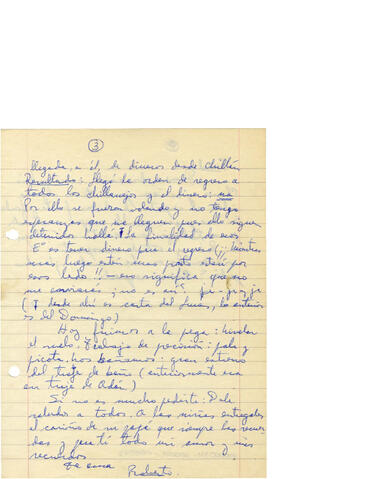 3
llegada, a él, de dineros desde Chillán
Resultado: llegó la orden de regreso a
todos los chillanejos y el dinero: no
Por ello se fueron volando y no tengo
esperanzas que me lleguen pues ellos siguen
detenidos hallá. La finalidad de esos
E° es tener dinero para el regreso (¡¡ Mientras
más luego estén más pronto estaré por
esos lados!! - eso significa que no
me enviarás ¿no es así? ja-ja-ja
( desde ahí es carta del Lunes, lo anterior
es del Domingo)
Hoy fuimos a la pega: nivelar
el suelo. Trabajo de precisión: pala y
picota. Nos bañamos: gran estreno
del traje de baño (anteriormente era
en traje de Adán)
Si no es mucho pedirte: Dale
saludos a todos. A las niñas entrégales
el cariño de su papá que siempre las recuer
da y para ti todo mi amor y mis
recuerdos
Te ama Roberto.